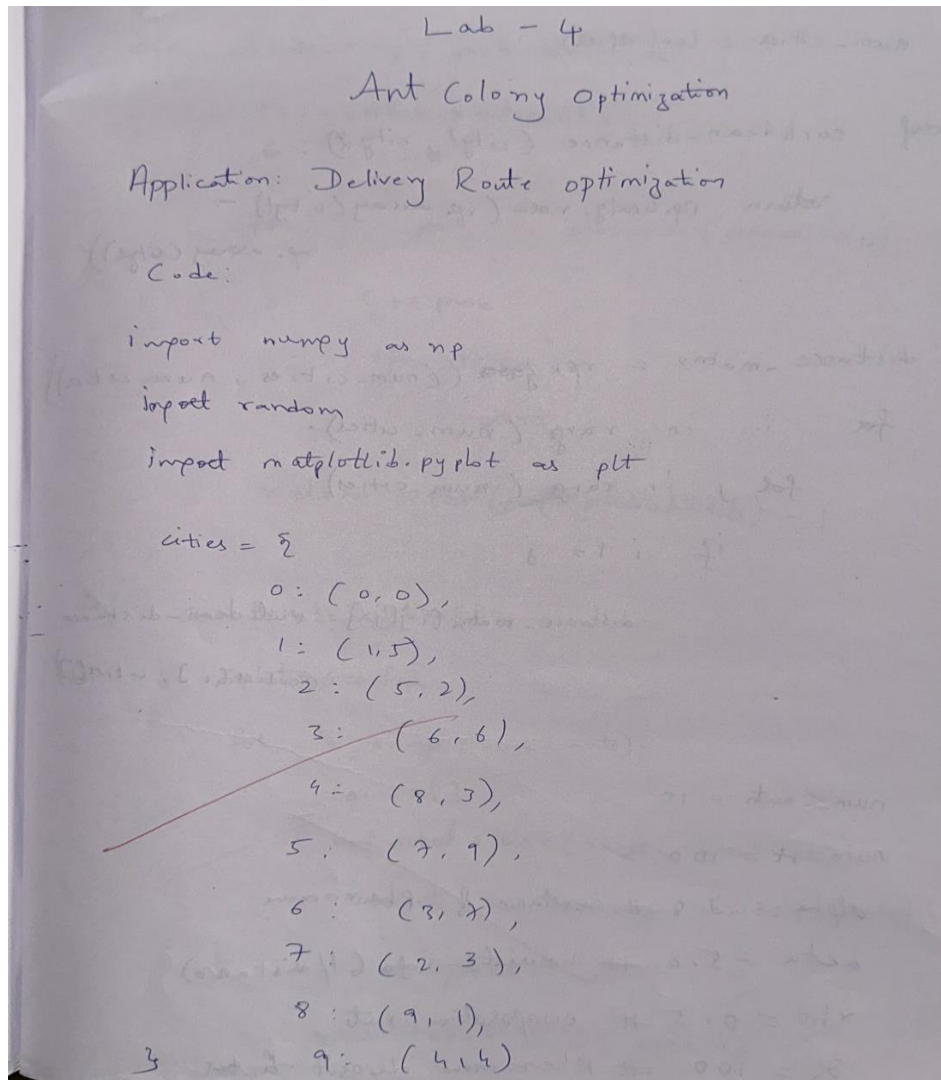 Lab - 4
Ant Colony Optimization
Application: Delivery Route optimization
Code:
import numpy as np
import random
import matplotlib.pyplot as plt
cities = {
0: (0,0),
1: (1,5),
2: (5,2),
3: (6,6),
4: (8,3),
5: (7,9),
6: (3,7),
7: (2,3),
8: (9,1),
} 9: (4,4)